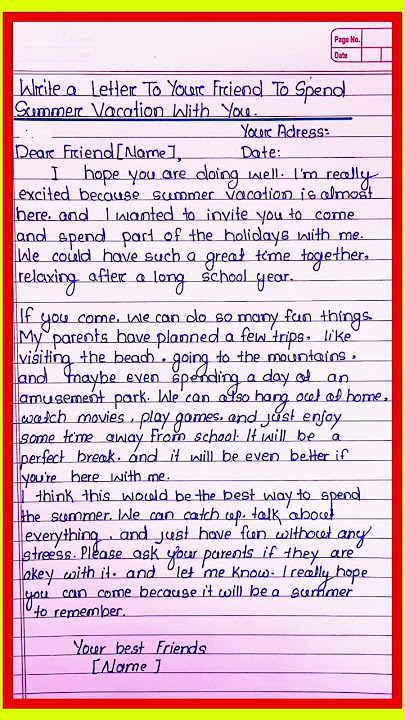 Page No.
Date
Write a Letter To Your Friend To Spend
Summer Vacation With You.
Your Adress:
Dear Friend [Name], Date:
I hope you are doing well. I'm really
excited because summer vacation is almost
here. and I wanted to invite you to come
and spend part of the holidays with me.
We could have such a great time together.
relaxing after a long school year.
If you come, we can do so many fun things.
My parents have planned a few trips. like
visiting the beach. going to the mountains.
and maybe even spending a day at an
amusement park. We can also hang out at home.
watch movies, play games. and just enjoy
some time away from school. It will be a
perfect break. and it will be even better if
you're here with me.
I think this would be the best way to spend
the summer. We can catch up. talk about
everything. and just have fun without any
stress. Please ask your parents if they are
okey with it. and let me know. I really hope
you can come because it will be a summer
to remember.
Your best Friends
[Name]